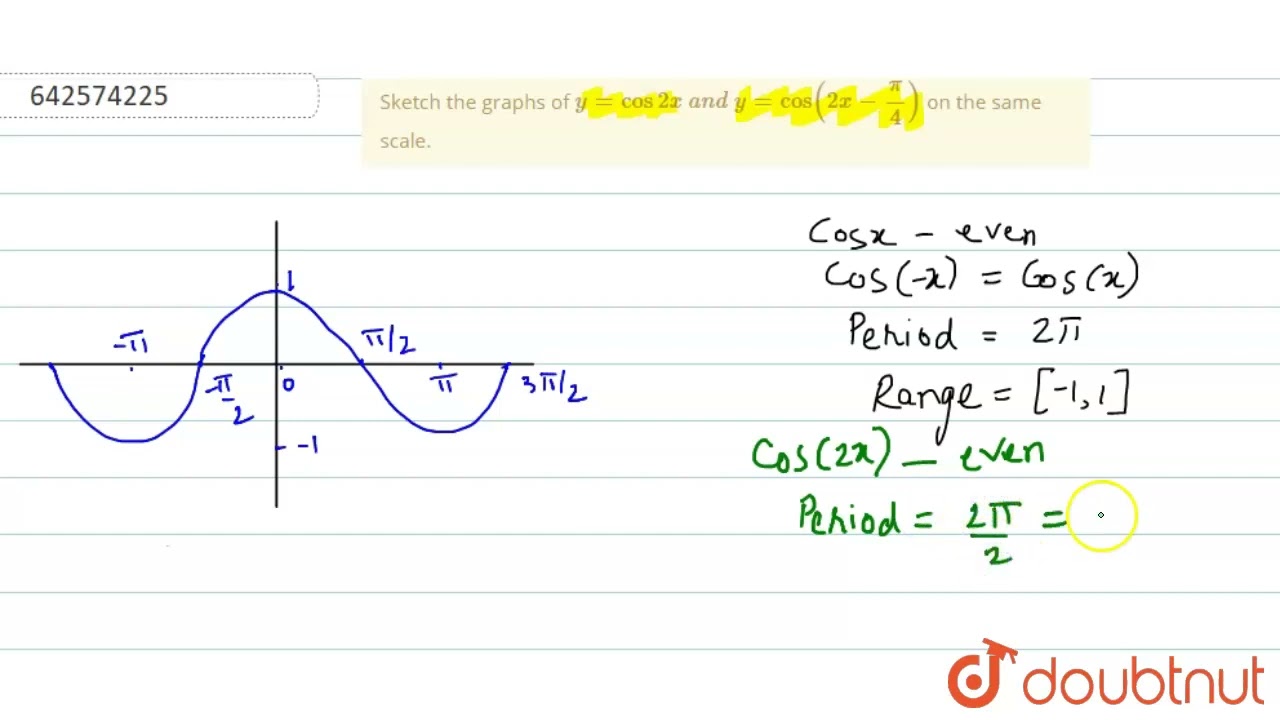 642574225
Sketch the graphs of y = cos 2x and y = cos(2x − π/4) on the same
scale.
Cosx – even
Cos(-x) = Cos(x)
Period = 2π
Range = [-1, 1]
Cos(2x) – even
Period = 2π/2 =
1
-π
π/2
-π/2
0
π
3π/2
-1
doubtnut